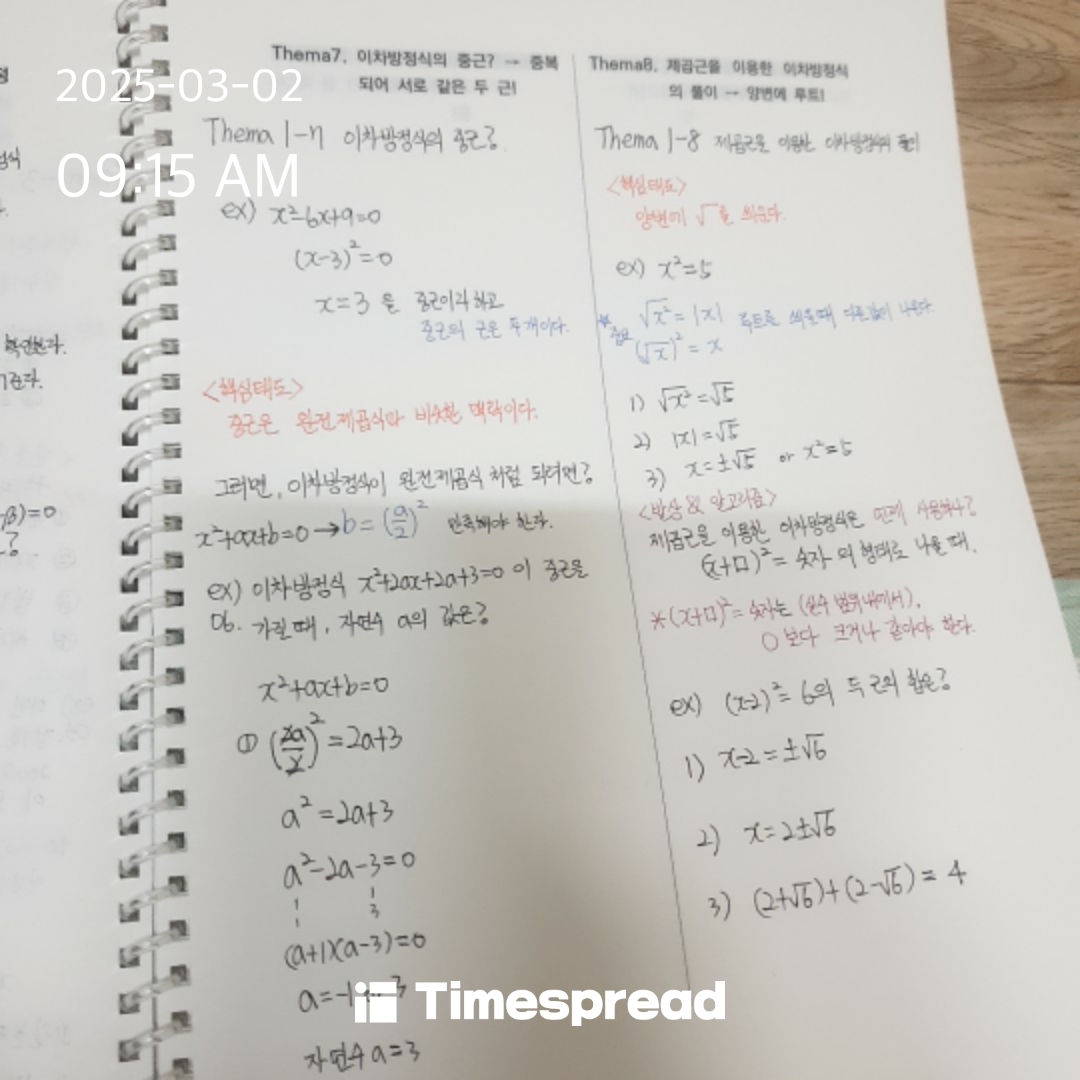 2025-03-02
09:15 AM
Thema7. 이차방정식의 중근? → 중복
되어 서로 같은 두 근!
Thema 1-7 이차방정식의 중근?
ex) x²-6x+9=0
(x-3)²=0
x=3 을 중근이라 하고
중근의 근은 두개이다.
<핵심태도>
중근은 완전제곱식과 비슷한 맥락이다.
그러면, 이차방정식이 완전제곱식 처럼 되려면?
x²+ax+b=0 → b=(a/2)² 만족해야 한다.
ex) 이차방정식 x²+2ax+2a+3=0 이 중근을
06. 가질 때, 자연수 a의 값은?
x²+ax+b=0
① (2a/2)²=2a+3
a²=2a+3
a²-2a-3=0
1 3
(a+1)(a-3)=0
a=-1 3
자연수 a=3
Thema8. 제곱근을 이용한 이차방정식
의 풀이 → 양변에 루트!
Thema 1-8 제곱근을 이용한 이차방정식의 풀이
<핵심태도>
양변에 √를 씌운다.
ex) x²=5
* 중요 √x² = |x| 루트를 씌울때 다른값이 나온다.
(√x)² = x
1) √x²=√5
2) |x|=√5
3) x=±√5 or x²=5
<발상 & 알고리즘>
제곱근을 이용한 이차방정식은 언제 사용하나?
(x+□)²= 숫자 의 형태로 나올 때.
*(x+□)²= 숫자는 (실수 범위내에서),
0 보다 크거나 같아야 한다.
ex) (x-2)²= 6의 두 근의 합은?
1) x-2=±√6
2) x=2±√6
3) (2+√6)+(2-√6)= 4
확인한다.
β)=0
?
Timespread